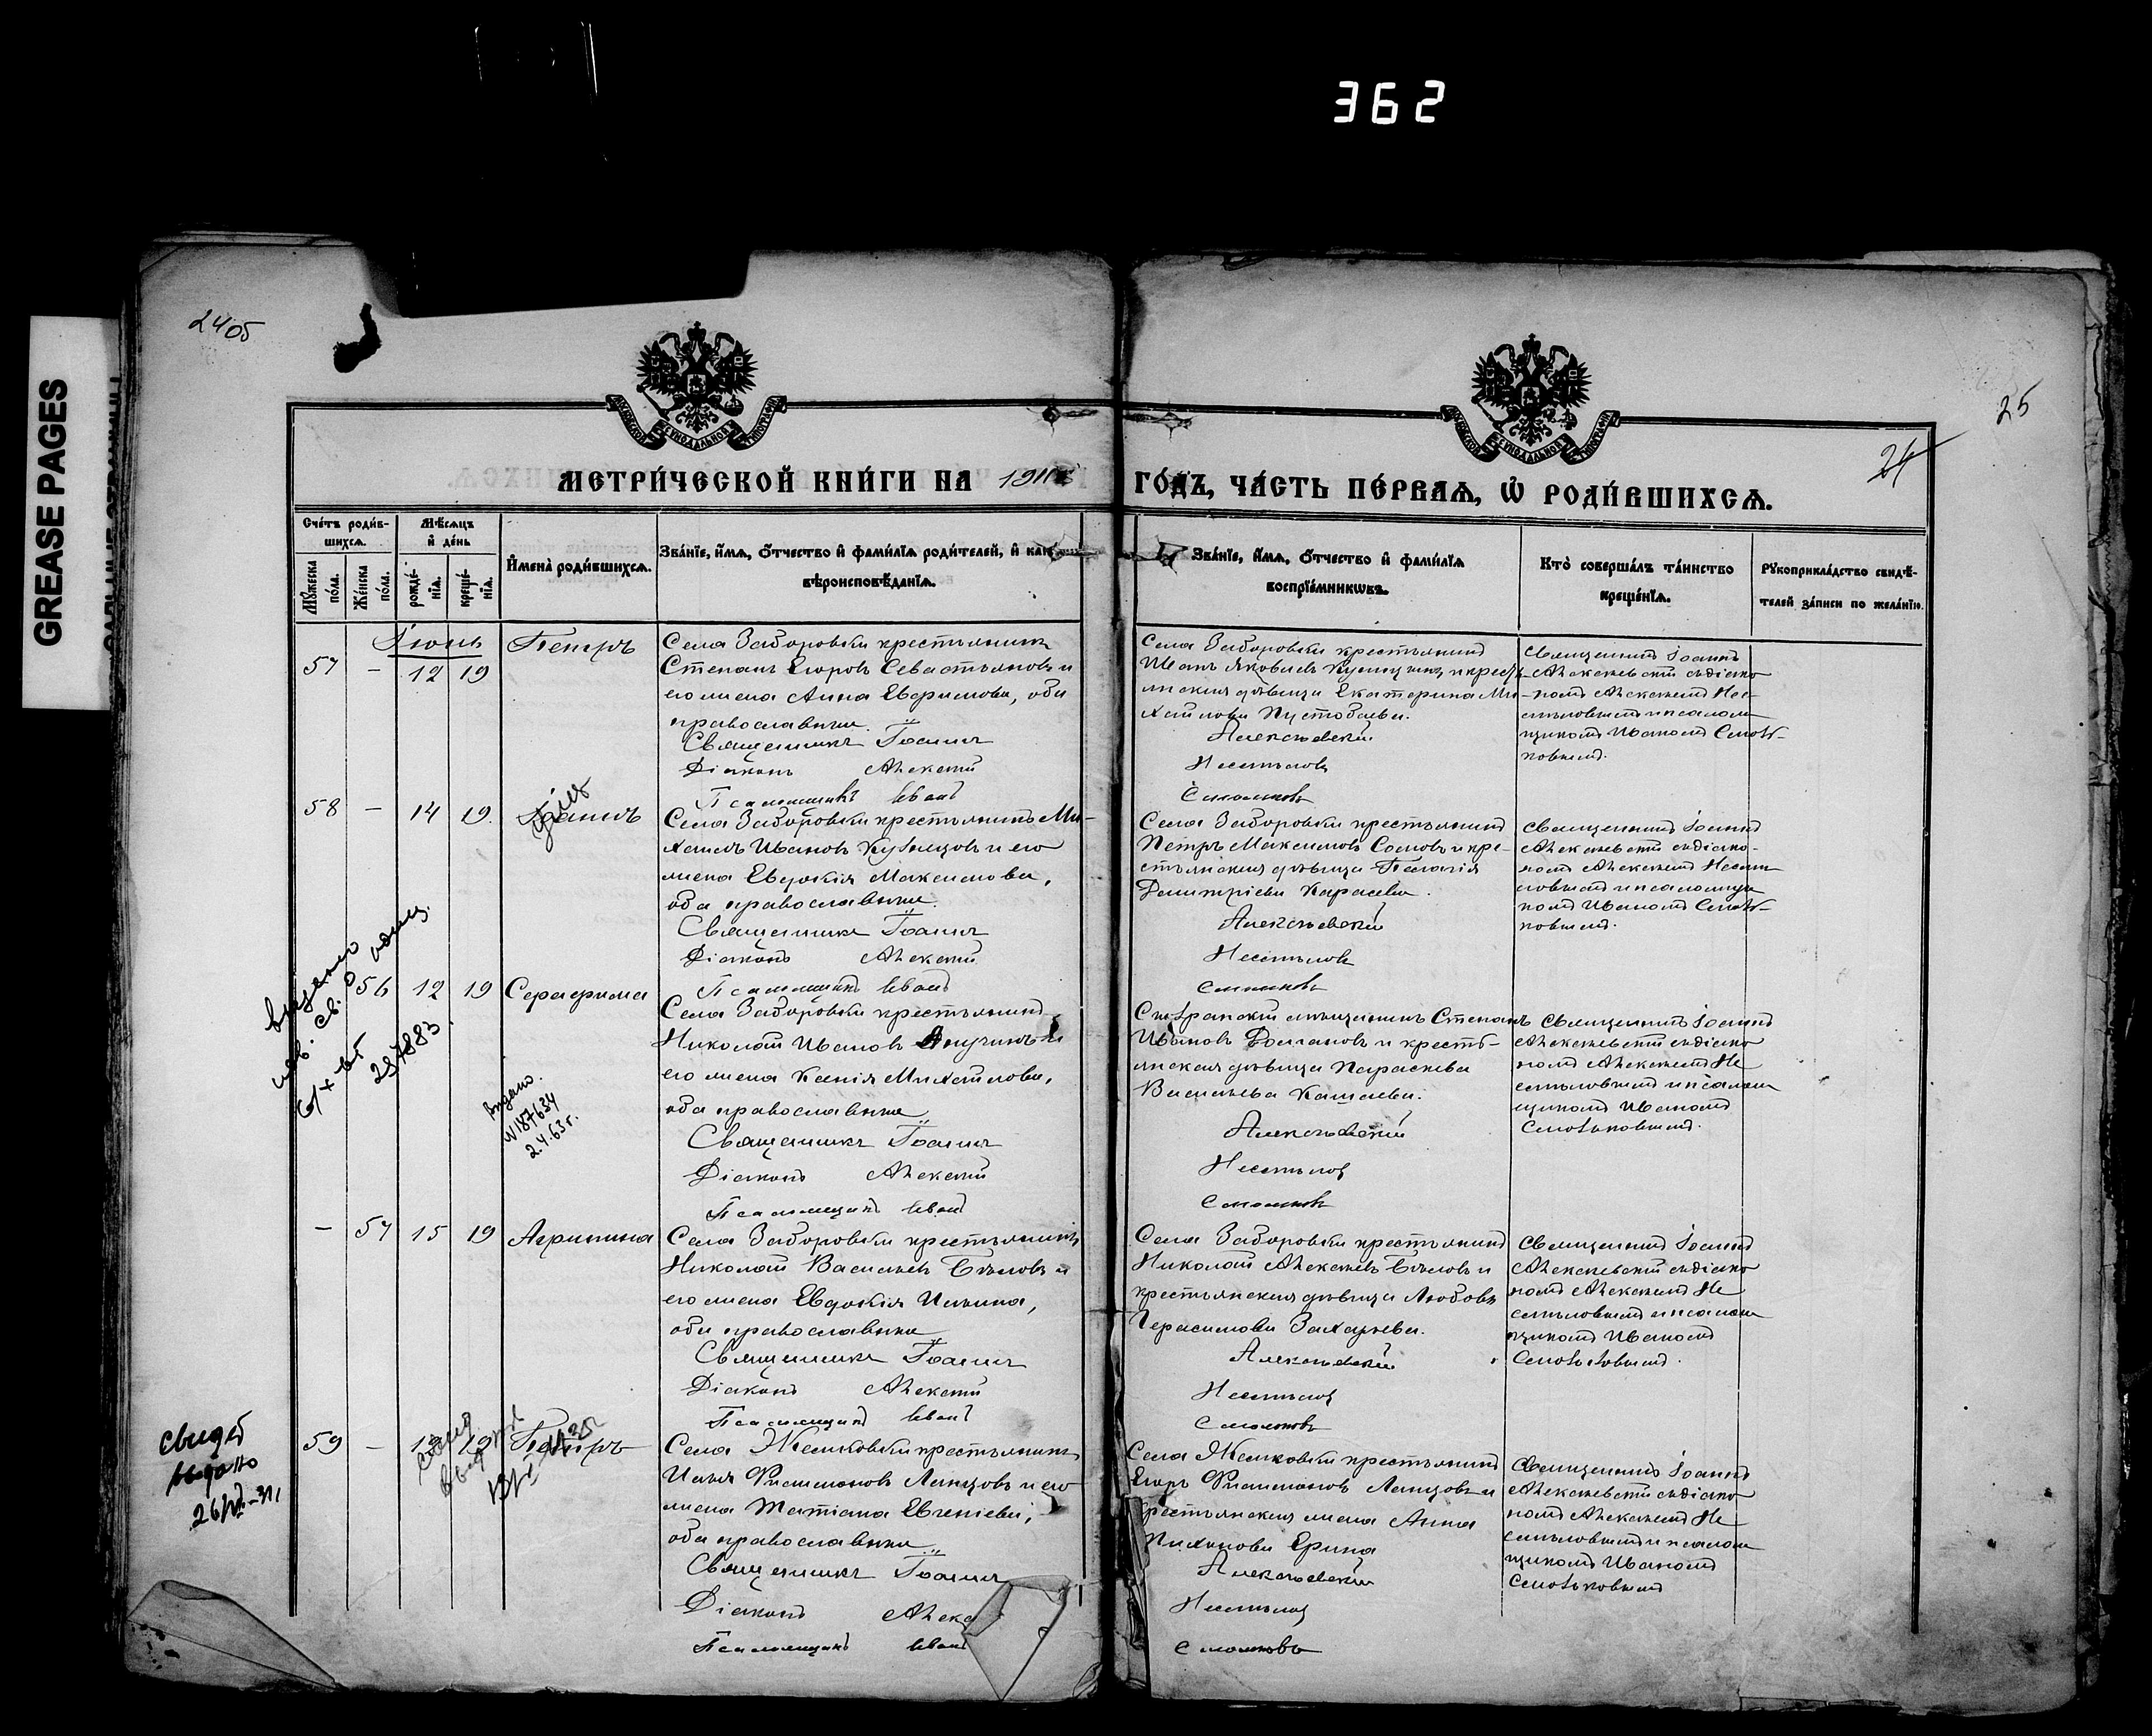 362
GREASE PAGES
24об
25
24
МЕТРИ́ЧЕСКОЙ КНИ́ГИ НА 191
ГО́ДЪ, ЧА́СТЬ ПЕ́РВАѦ, Ѡ҆ РОДИ́ВШИХСѦ.
Сче́тъ роди́в-
шихсѧ.
Мѣ́сѧцъ
и҆ де́нь
Мꙋ́жеска
по́ла.
Же́нска
по́ла.
рожде́-
нїѧ.
креще́-
нїѧ.
И҆мена̀ роди́вшихсѧ.
Зва́нїе, и҆́мѧ, ѻ҆́тчество и҆ фами́лїѧ роди́телей, и҆ как
вѣроисповѣ́данїѧ.
Зва́нїе, и҆́мѧ, ѻ҆́тчество и҆ фами́лїѧ
воспрїе́мникѡвъ.
Кто̀ соверша́лъ та́инство
креще́нїѧ.
Рꙋкоприкла́дство свидѣ́-
телей за́писи по жела́нїю.
Іюнь
57 – 12 19
Петръ
Села Заборовки крестьянинъ
Степанъ Егоровъ Севастьяновъ и
его жена Анна Ефримова, оба
православные.
Священникъ Іоаннъ
Діаконъ Алексій
Псаломщикъ Иванъ
Села Заборовки крестьянинъ
Иванъ Яковлевъ Кузнецовъ и кресть-
янская дѣвица Екатерина Ми-
хайлова Пустобаева.
Алексѣевскій
Несмѣловъ
Смольковъ
Священникъ Іоаннъ
Алексѣевскій съ діако
номъ Алексѣемъ Нес-
мѣловымъ и псалом
щикомъ Иваномъ Смоль-
ковымъ.
58 – 14 19.
Іоаннъ
Села Заборовки крестьянинъ Ми-
хаилъ Ивановъ Кузнецовъ и его
жена Евдокія Максимова,
оба православные.
Священникъ Іоаннъ
Діаконъ Алексій
Псаломщикъ Иванъ
Села Заборовки крестьянинъ
Петръ Максимовъ Сомовъ и кре-
стьянская дѣвица Пелагія
Димитріева Карасева.
Алексѣевскій
Несмѣловъ
Смольковъ
Священникъ Іоаннъ
Алексѣевскій съ діако-
номъ Алексѣемъ Несмѣ
ловымъ и псаломщи
комъ Иваномъ Смоль-
ковымъ.
выдано
св. о
297883
56 12 19
Серафима
выдано.
№187634
2.4.63г.
Села Заборовки крестьянинъ
Николай Ивановъ Аничинъ и
его жена Ксенія Михайлова,
оба православные
Священникъ Іоаннъ
Діаконъ Алексій
Псаломщикъ Иванъ
Сызранскій мѣщанинъ Степанъ
Ивановъ Романовъ и кресть-
янская дѣвица Параскева
Васильева Кашаева.
Алексѣевскій
Несмѣловъ
Смольковъ
Священникъ Іоаннъ
Алексѣевскій съ діако
номъ Алексѣемъ Не
смѣловымъ и псалом
щикомъ Иваномъ
Смольковымъ.
– 57 15 19
Агрипина
Села Заборовки крестьянинъ
Николай Васильевъ Бѣловъ и
его жена Евдокія Ильина,
оба православные
Священникъ Іоаннъ
Діаконъ Алексій
Псаломщикъ Иванъ
Села Заборовки крестьянинъ
Николай Алексѣевъ Бѣловъ и
крестьянская дѣвица Любовь
Герасимова Захарьева.
Алексѣевскій
Несмѣловъ
Смольковъ
Священникъ Іоаннъ
Алексѣевскій съ діако
номъ Алексѣемъ Не
смѣловымъ и псалом
щикомъ Иваномъ
Смольковымъ.
свидет
выдано
59 – 19
Петръ
Села Жемковки крестьянинъ
Илья Филимоновъ Ланцовъ и его
жена Татіана Евгеніева,
оба православные
Священникъ Іоаннъ
Діаконъ Алекс
Псаломщикъ Иванъ
Села Жемковки крестьянинъ
Егоръ Филимоновъ Ланцовъ и
крестьянская жена Анна
Тихонова Ерина
Алексѣевскій
Несмѣловъ
Смольковъ
Священникъ Іоаннъ
Алексѣевскій съ діако
номъ Алексѣемъ Не
смѣловымъ и псалом
щикомъ Иваномъ
Смольковымъ